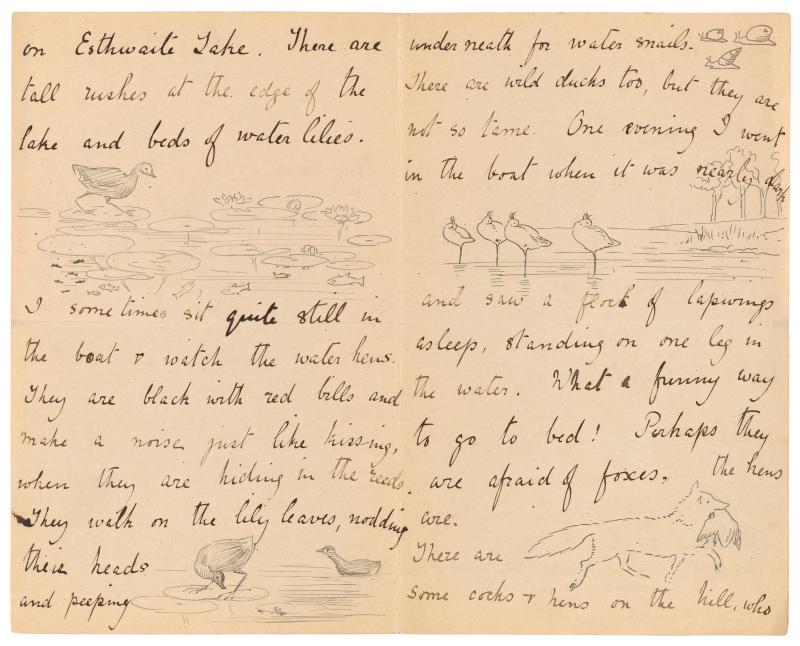 on Esthwaite Lake. There are
tall rushes at the edge of the
lake and beds of water lilies.
I sometimes sit quite still in
the boat & watch the water hens.
They are black with red bills and
make a noise just like kissing,
when they are hiding in the reeds.
They walk on the lily leaves, nodding
their heads
and peeping
underneath for water snails.
There are wild ducks too, but they are
not so tame. One evening I went
in the boat when it was nearly dark
and saw a flock of lapwings
asleep, standing on one leg in
the water. What a funny way
to go to bed! Perhaps they
are afraid of foxes. the hens
are.
There are
some cocks & hens on the hill, who